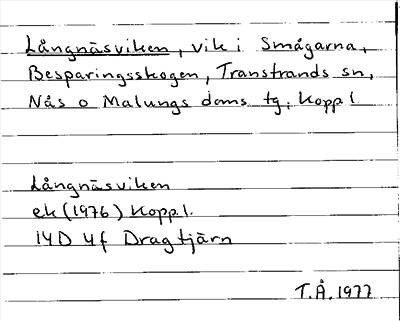 Långnäsviken, vik i Smågarna,
Besparingsskogen, Transtrands sn,
Nås o Malungs doms tg, Kopp l
Långnäsviken
ek (1976) Kopp l.
14D 4f Dragtjärn
T.Å. 1977